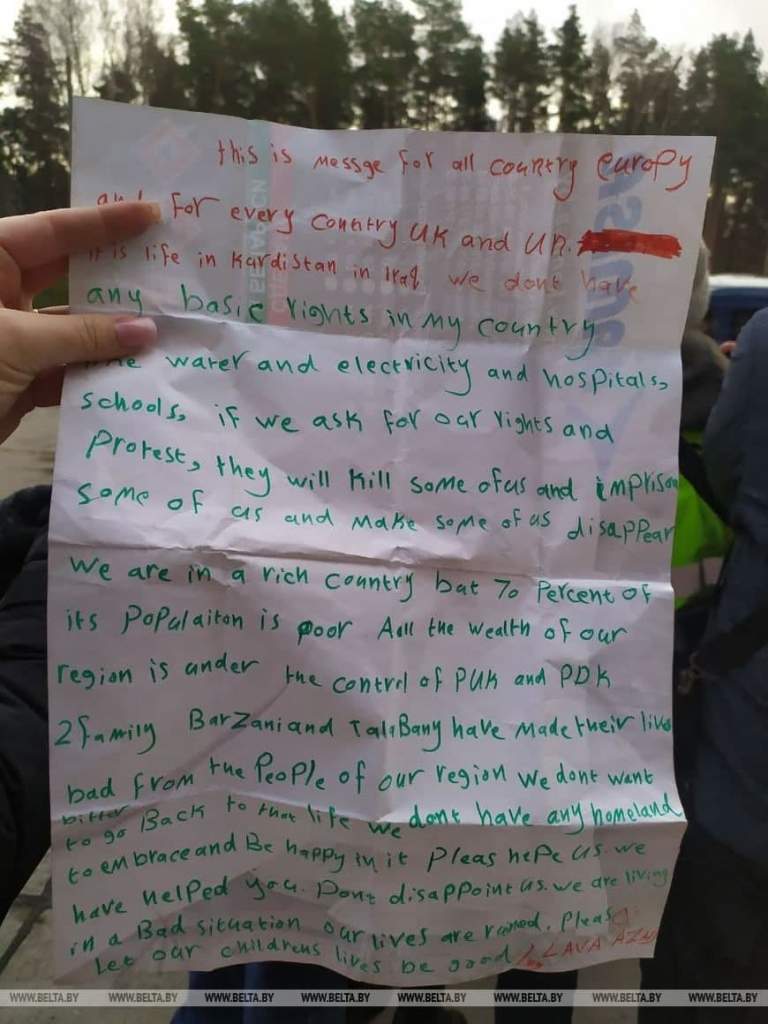 this is messge for all country europy
and for every country UK and UN.
it is life in Kardistan in Iraq we dont have
any basic rights in my country
like water and electricity and hospitals,
schools, if we ask for our rights and
Protest, they will kill some of us and imprison
some of us and make some of us disappear
we are in a rich country but 70 Percent of
its Populaiton is poor Aall the wealth of our
region is under the control of PUK and PDK
2 family BarZani and TalaBany have made their lives
bad from the People of our region we dont want
bitter
to go Back to that life we dont have any homeland
to embrace and Be happy in it Pleas helpe us. we
have helped you. Dont disappoint us. we are living
in a Bad situation our lives are ruined. Pleas
Let our childrens lives be good LAVA
WWW.BELTA.BY WWW.BELTA.BY WWW.BELTA.BY WWW.BELTA.BY WWW.BELTA.BY WWW.BELTA.BY WWW.BELTA.BY WWW.BELTA.BY